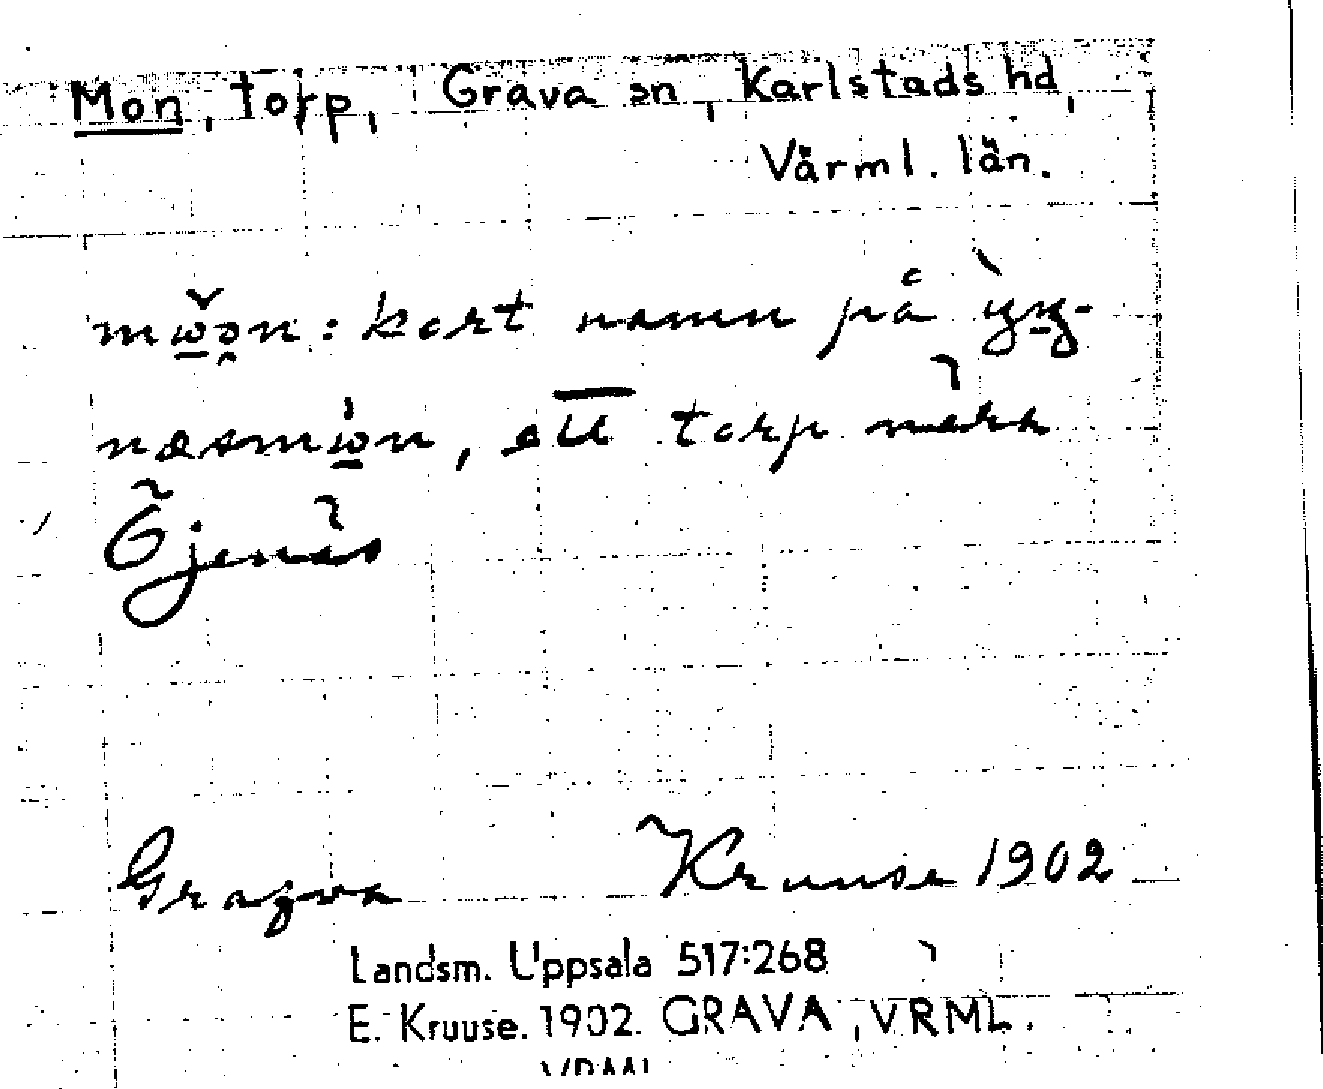 Mon, torp, Grava sn, Karlstads hd,
Värml. län.
kort namn på
ett torp nära
Grafva Kruuse 1902
Landsm. Uppsala 517:268
E. Kruuse. 1902. GRAVA, VRML.
VRML